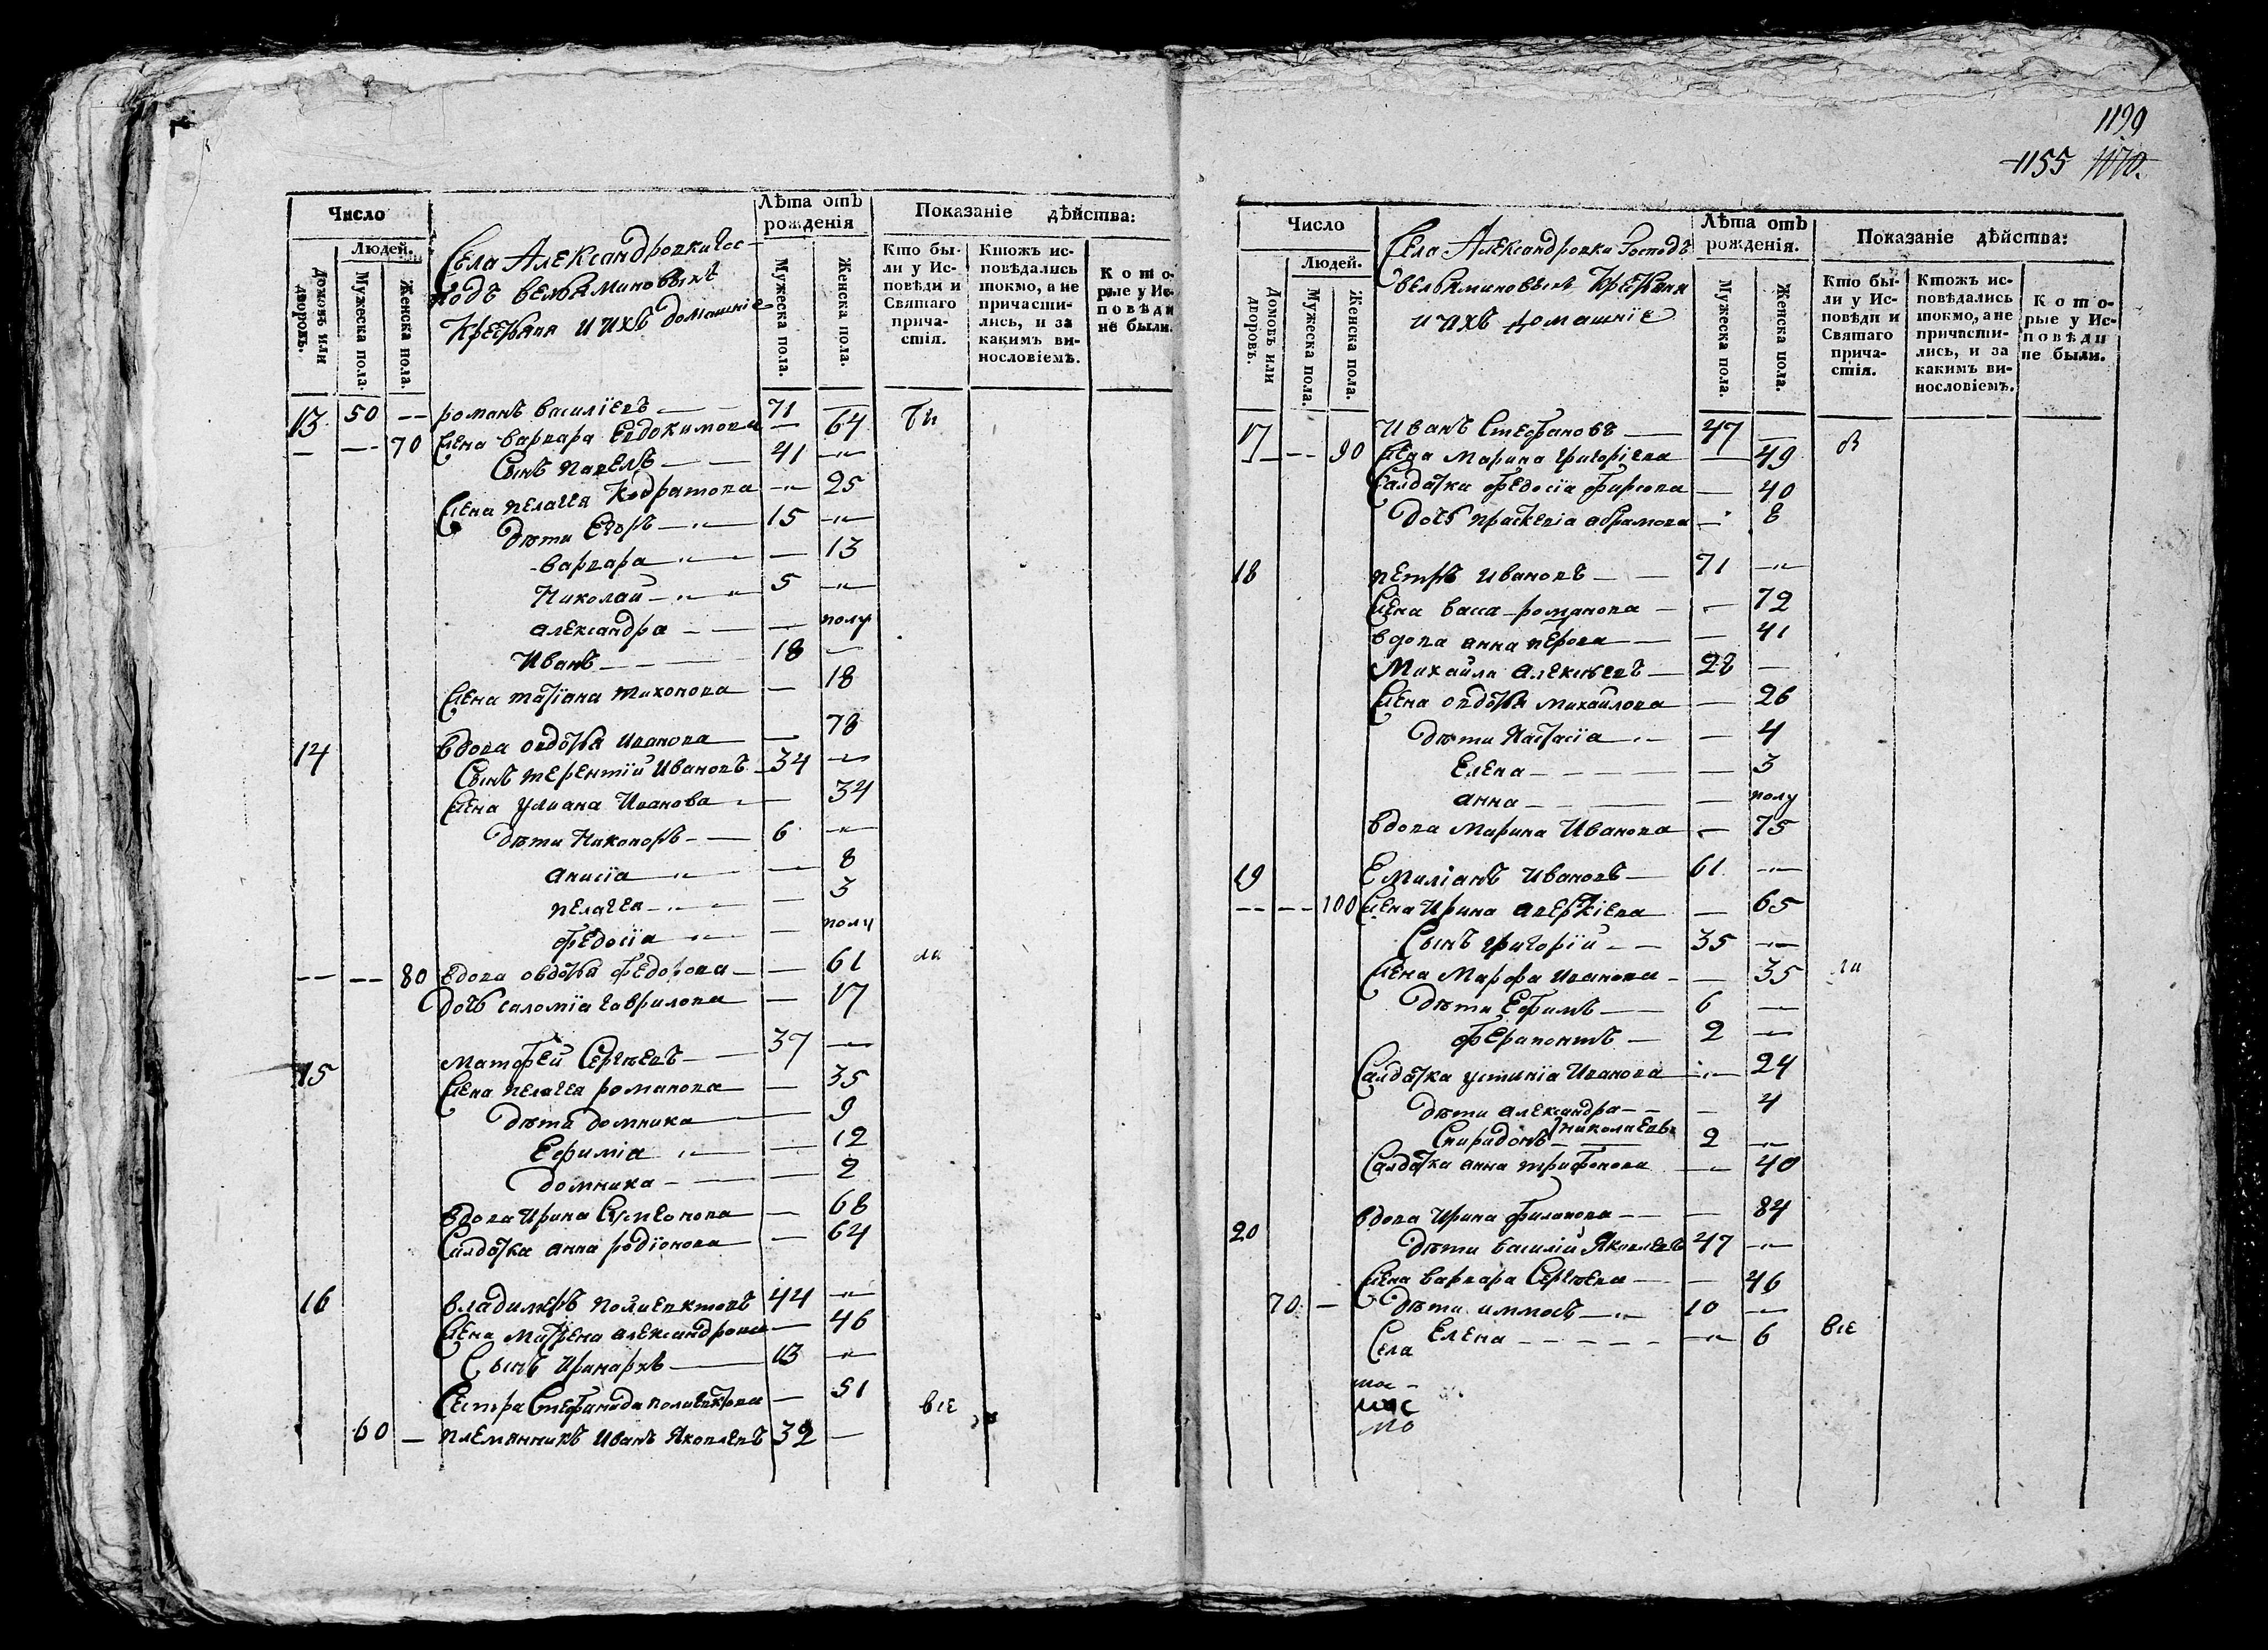 Число
Людей.
Домовъ или дворовъ.
Мужеска пола.
Женска пола.
Села Александровки Гос-
подъ вельяминовыхъ
Крестьяня и ихъ домашніе
Лѣта отъ рожденія
Мужеска пола.
Женска пола.
Показаніе дѣйства:
Кто бы-
ли у Ис-
повѣди и
Святаго
прича-
стія.
Ктожъ ис-
повѣдались
токмо, а не
причасти-
лись, и за
какимъ ви-
нословіемъ.
Кото-
рые у Ис-
повѣди
не были.
13 50 -- романъ василіевъ 71 — бы
— -- 70 жена варвара Евдокимова — 64
Сынъ павелъ 41 —
жена пелагея Кодратова — 25
дѣти Егоръ 15 —
варвара — 13
Николай 5 —
александра — полу
Иванъ 18 —
жена татіана тихонова — 18
14 вдова овдотья иванова — 78
Сынъ терентій Ивановъ 34 —
жена улиана Иванова — 34
дѣти Никоноръ 6 —
анисіа — 8
пелагея — 3
федосіа — полу
-- -- 80 вдова овдотья федорова — 61 ли
дочь саломіа гаврилова — 17
15 Матфей Сергѣевъ 37 —
жена пелагея романова — 35
дѣти домника — 9
Ефиміа — 12
домника — 2
вдова Ирина Сумеонова — 68
Салдатка анна родіонова — 64
16 владимеръ полиевктовъ 44 —
жена Матрена александрова — 46
Сынъ Иринархъ 13 —
Сестра Стефанида полиевктова — 51 всѣ
60 — племянникъ Иванъ Яковлевъ 32 —
1199
1155 1170.
Число
Людей.
Домовъ или дворовъ.
Мужеска пола.
Женска пола.
Села Александровки Господъ
вельяминовыхъ Крестьяня
и ихъ домашніе
Лѣта отъ рожденія.
Мужеска пола.
Женска пола.
Показаніе дѣйства:
Кто бы-
ли у Ис-
повѣди и
Святаго
прича-
стія.
Ктожъ ис-
повѣдались
токмо, а не
причасти-
лись, и за
какимъ ви-
нословіемъ.
Кото-
рые у Ис-
повѣди
не были.
17 Иванъ Стефановъ 47 —
— -- 90 жена Марина григоріева — 49
Салдатка федосіа фирсова — 40
дочь праскевіа абрамова — 8
18 петръ ивановъ 71 —
жена васса романова — 72
вдова анна — 41
Михайла алексѣевъ 28 —
жена овдотья михайлова — 26
дѣти Настасіа — 4
Елена — 3
анна — полу
вдова Марина Иванова — 75
19 Емиліанъ Ивановъ 61 —
-- -- 100 жена Ирина аверкіева — 65
Сынъ григорій 35 —
жена Марфа иванова — 35 ли
дѣти Ефимъ 6 —
ферапонтъ 2 —
Салдатка устиніа Иванова — 24
дѣти александра — 4
Спиридонъ николаевы 2 —
Салдатка анна трифонова — 40
20 вдова Ирина филатова — 84
дѣти василій Яковлевъ 47 —
жена варвара Сергѣева — 46
70 — дѣти 10 —
Елена — 6 всѣ
Села